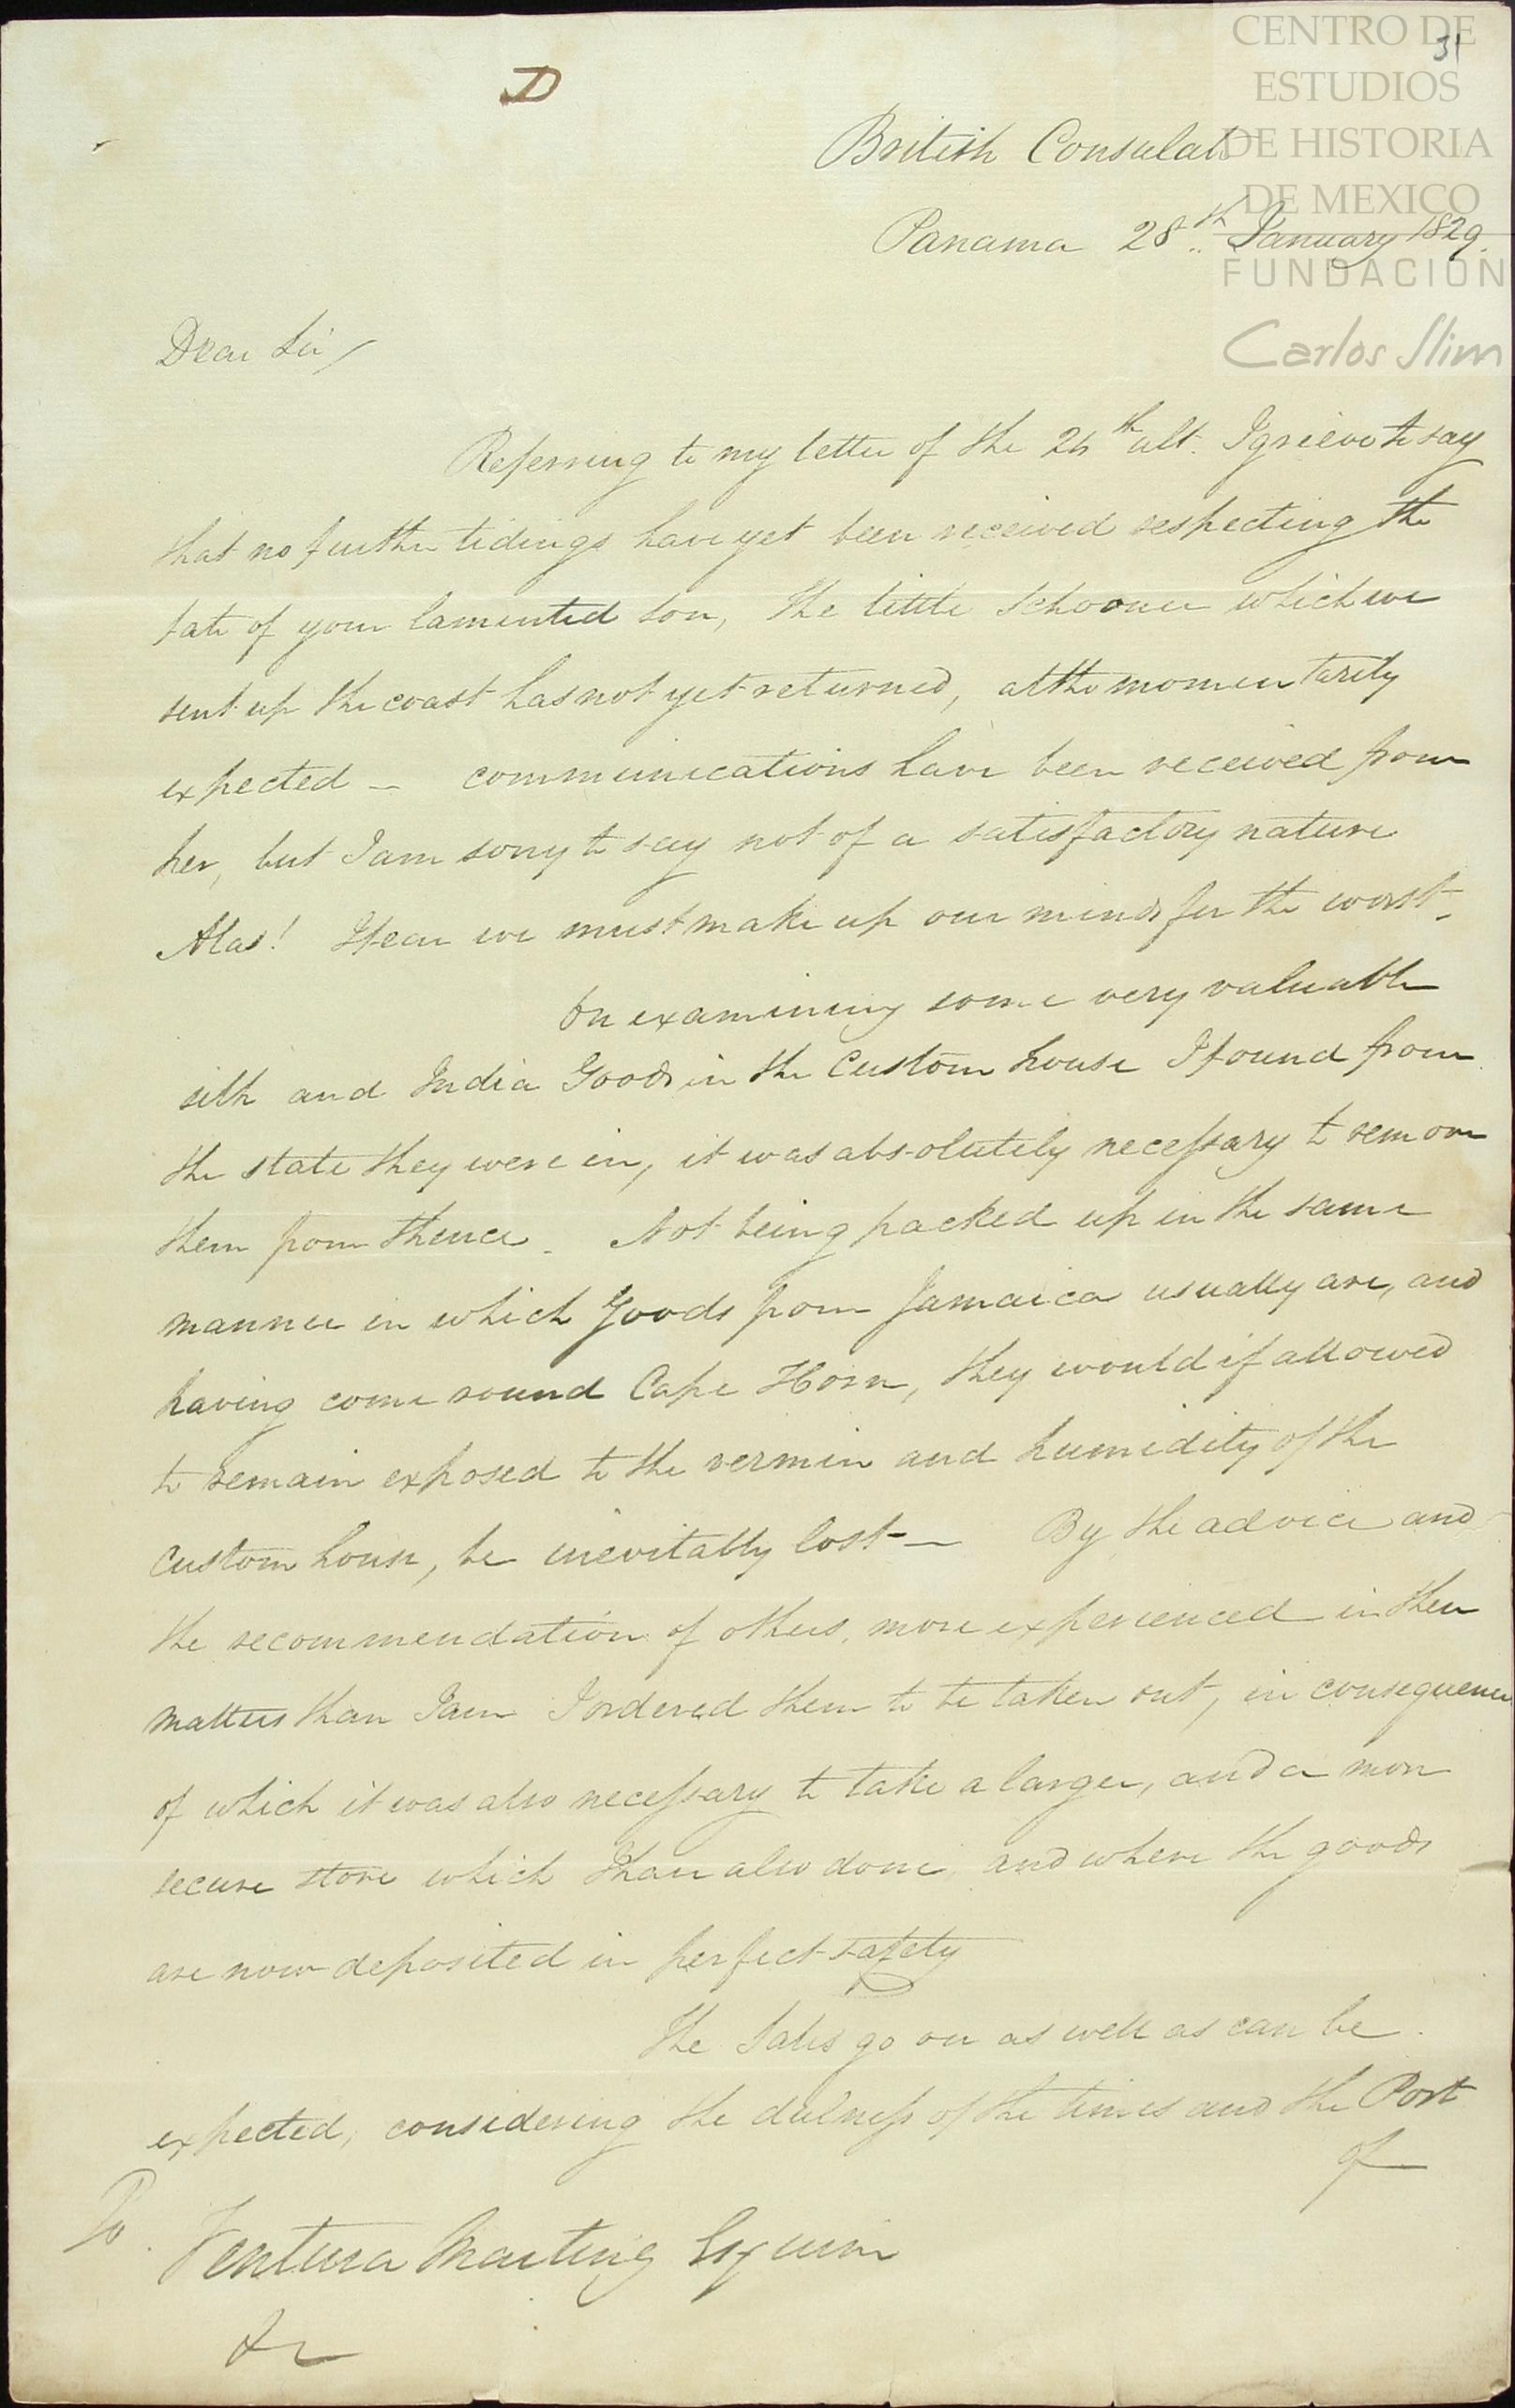 D
31
CENTRO DE
ESTUDIOS
DE HISTORIA
DE MEXICO
FUNDACIÓN
Carlos Slim
British Consulate
Panama 28th January 1829.
Dear Sir/
Referring to my letter of the 24th ult. I grieve to say
that no further tidings have yet been received respecting the
fate of your lamented son, the little schooner which we
sent up the coast has not yet returned, altho momentarily
expected – communications have been received from
her, but I am sorry to say not of a satisfactory nature
Alas! I fear we must make up our minds for the worst –
On examining some very valuable
silk and India Goods in the Custom house I found from
the state they were in, it was absolutely necessary to remove
them from thence – Not being packed up in the same
manner in which Goods from Jamaica usually are, and
having come round Cape Horn, they would if allowed
to remain exposed to the vermin and humidity of the
Custom house, be inevitably lost – By the advice and
the recommendation of others, more experienced in these
matters than I am I ordered them to be taken out, in consequence
of which it was also necessary to take a larger, and a more
secure store which I have also done and where the goods
are now deposited in perfect safety
The Sales go on as well as can be
expected, considering the dulness of the times and the Port
of
To Ventura Martinez Esquire
&c